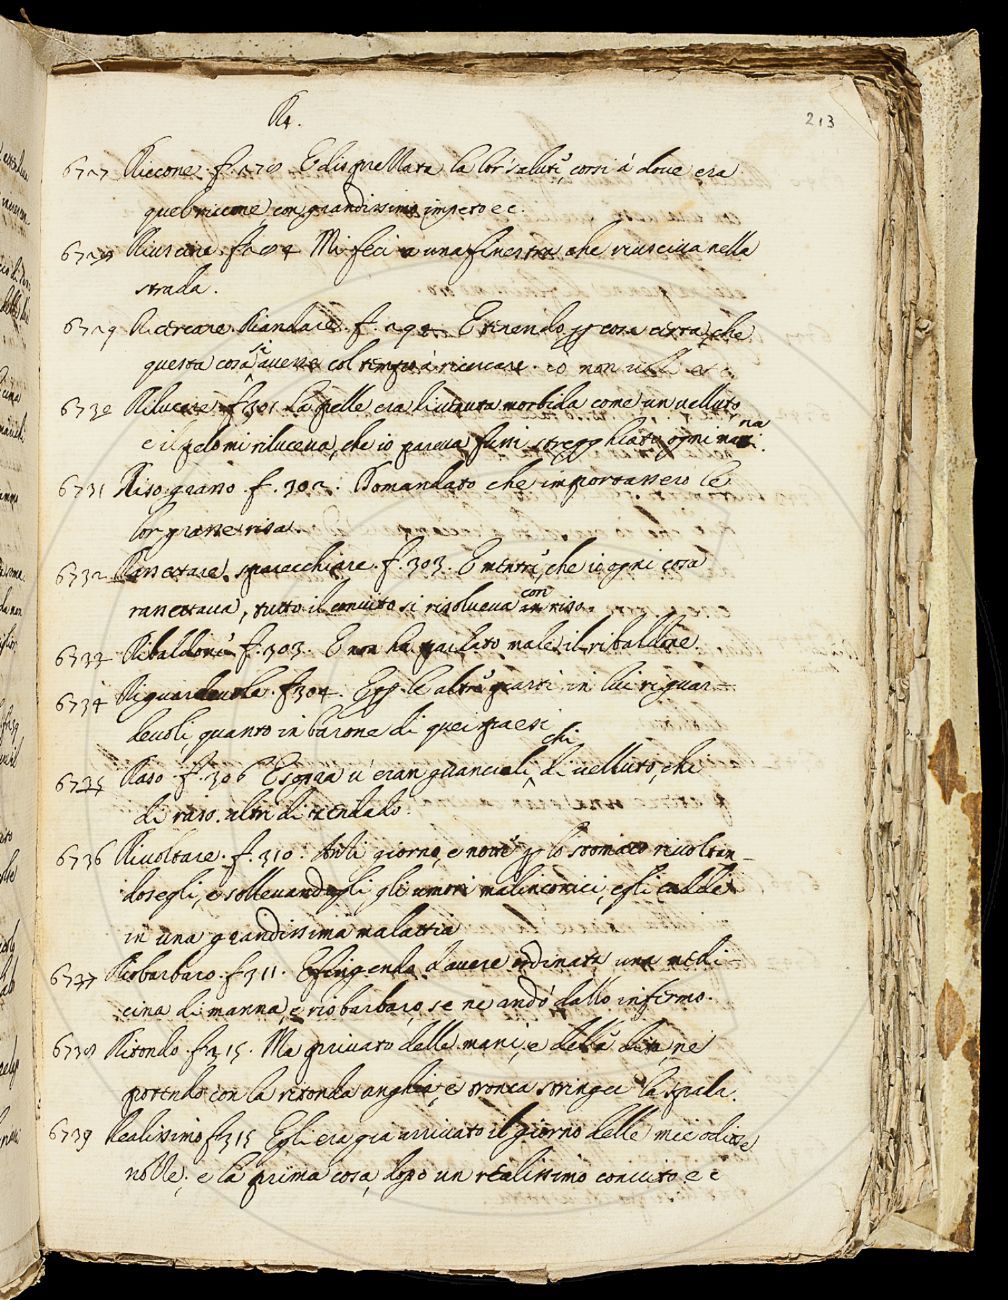 R4.
213
6727 Riccone. f. 278 E disquellata la lor salute, corsi à dove era
quel riccone, con grandissimo impeto ec.
6728 Riuscire. f. 284 Mi feci a una finestra che riusciva nella
strada.
6729 Ricercare. Riandare. f. 292 E tenendo per cosa certa, che
questa cosa si avesse col tempo à ricercare. io non volli ec
6730 Rilucere. f. 301 La pelle era divenuta morbida come un velluto
e il pelo mi riluceva, che io pareva fussi stregghiato ogni mattina
6731 Riso grasso f. 302. Domandato che importassero le
lor grasse risa.
6732 Rassettare, sparecchiare. f. 303. E mentre, che io ogni cosa
rassettava, tutto il convito si risolveva con riso.
6733 Ribaldone f. 303. E non ha parlato male il ribaldone.
6734 Riguardevole. f. 304. E per le altre parti in lui riguar=
devoli, quanto in barone di quei paesi
6735 Raso. f. 306 E sopra v'eran guanciali, chi di velluto, chi
di raso. altri di zendado.
6736 Rivoltare. f. 310. Alli giorno, e notte per lo stomaco rivoltan=
dosegli, e sollevandogli gli umori malinconici, egli cadde
in una grandissima malattia
6737 Riobarbaro. f. 311. E fingendo d'avere ordinata una medi=
cina di manna, e riobarbaro, se ne andò dallo infermo.
6738 Ritondo. f. 315. Ma privato delle mani, e delle dita, ne
potendo con la ritonda unghia, e tronca stringer la spada.
6739 Realissimo f. 315 Egli era gia arrivato il giorno delle mie odiose
nozze, e la prima cosa, dopo un realissimo convito ec